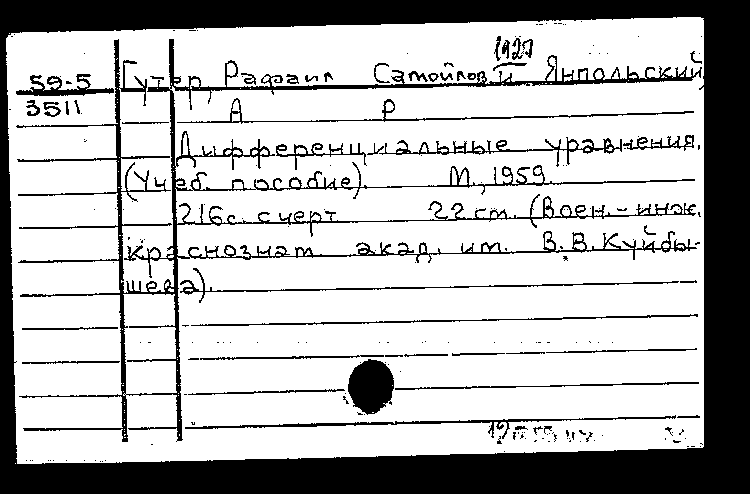 1920
59-5 Гутер, Рафаил Самойлов. и Янпольский,
3511 А Р
Дифференциальные уравнения.
(Учеб. пособие). М., 1959.
216с. с черт 22 cm. (Воен.-инж.
краснознам акад. им. В.В. Куйбы-
шева).